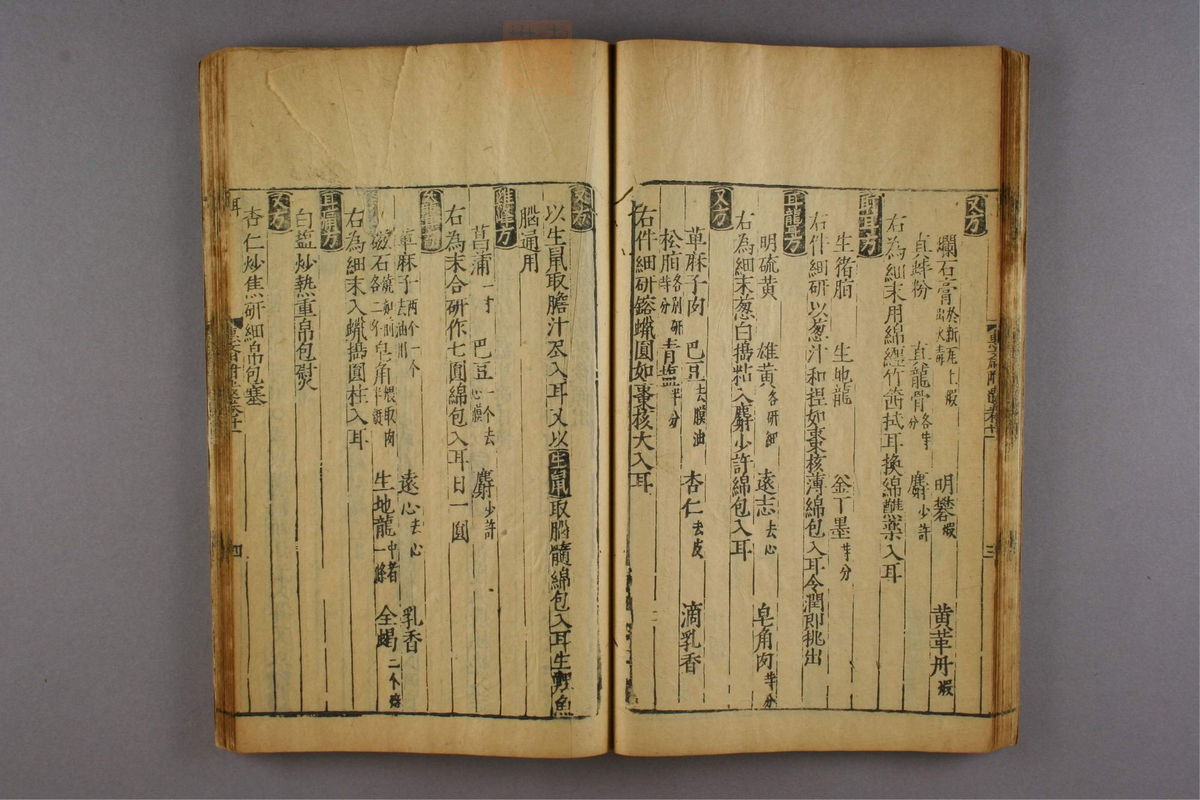 又方
爛石膏於新瓦上煆出火毒 明礬煆 黄茟丹煆
真蚌粉 真龍骨各等分 麝少許
右為細末用綿纏竹䇲拭耳換綿蘸藥入耳
耵耳方
生猪脂 生地龍 釡下墨等分
右件細研以葱汁和捏如棗核薄綿包入耳令潤即挑出
耳聾方
明硫黄 雄黄各研細 遠志去心 皂角肉等分
右為細末葱白搗粘入麝少許綿包入耳
又方
萆麻子肉 巴豆去膜油 杏仁去皮 滴乳香
松脂各別研等分 青塩半分
右件細研鎔蠟圓如棗核大入耳
又方
以生䑕取膽汁入耳又以生䑕取腦髓綿包入耳生鯉魚
腦通用
方
菖蒲一寸 巴豆一个去心膜 麝少許
右為末合研作七圓綿包入耳日一圓
萆麻子 遠心去心 乳香
磁石 皂角煨取肉半 生地龍中者一條 全蝎二个
右為細末入蠟搗圓柱入耳
耳痛方
白塩炒熱重帛包熨
又方
杏仁炒焦研細帛包塞
三
四
耳